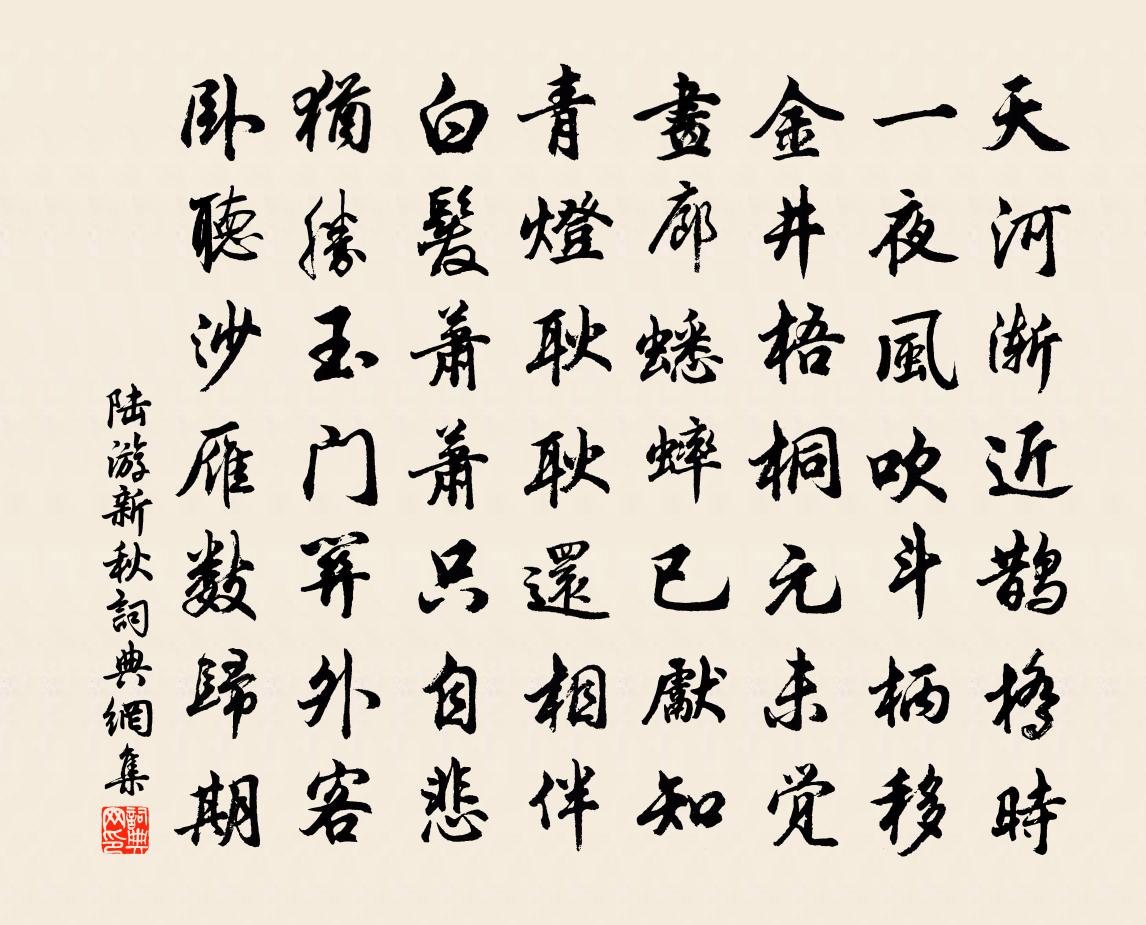 天河漸近鵲橋時
一夜風吹斗柄移
金井梧桐元未覺
畫廊蟋蟀已獻知
青燈耿耿還相伴
白髮蕭蕭只自悲
猶勝玉门開外客
卧聽沙雁數歸期
陆游新秋詞典網集
詞典网印